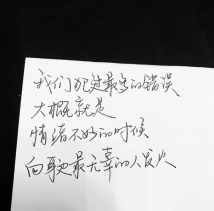 我们犯过最多的错误
大概就是
情绪不好的时候
向身边最无辜的人发火